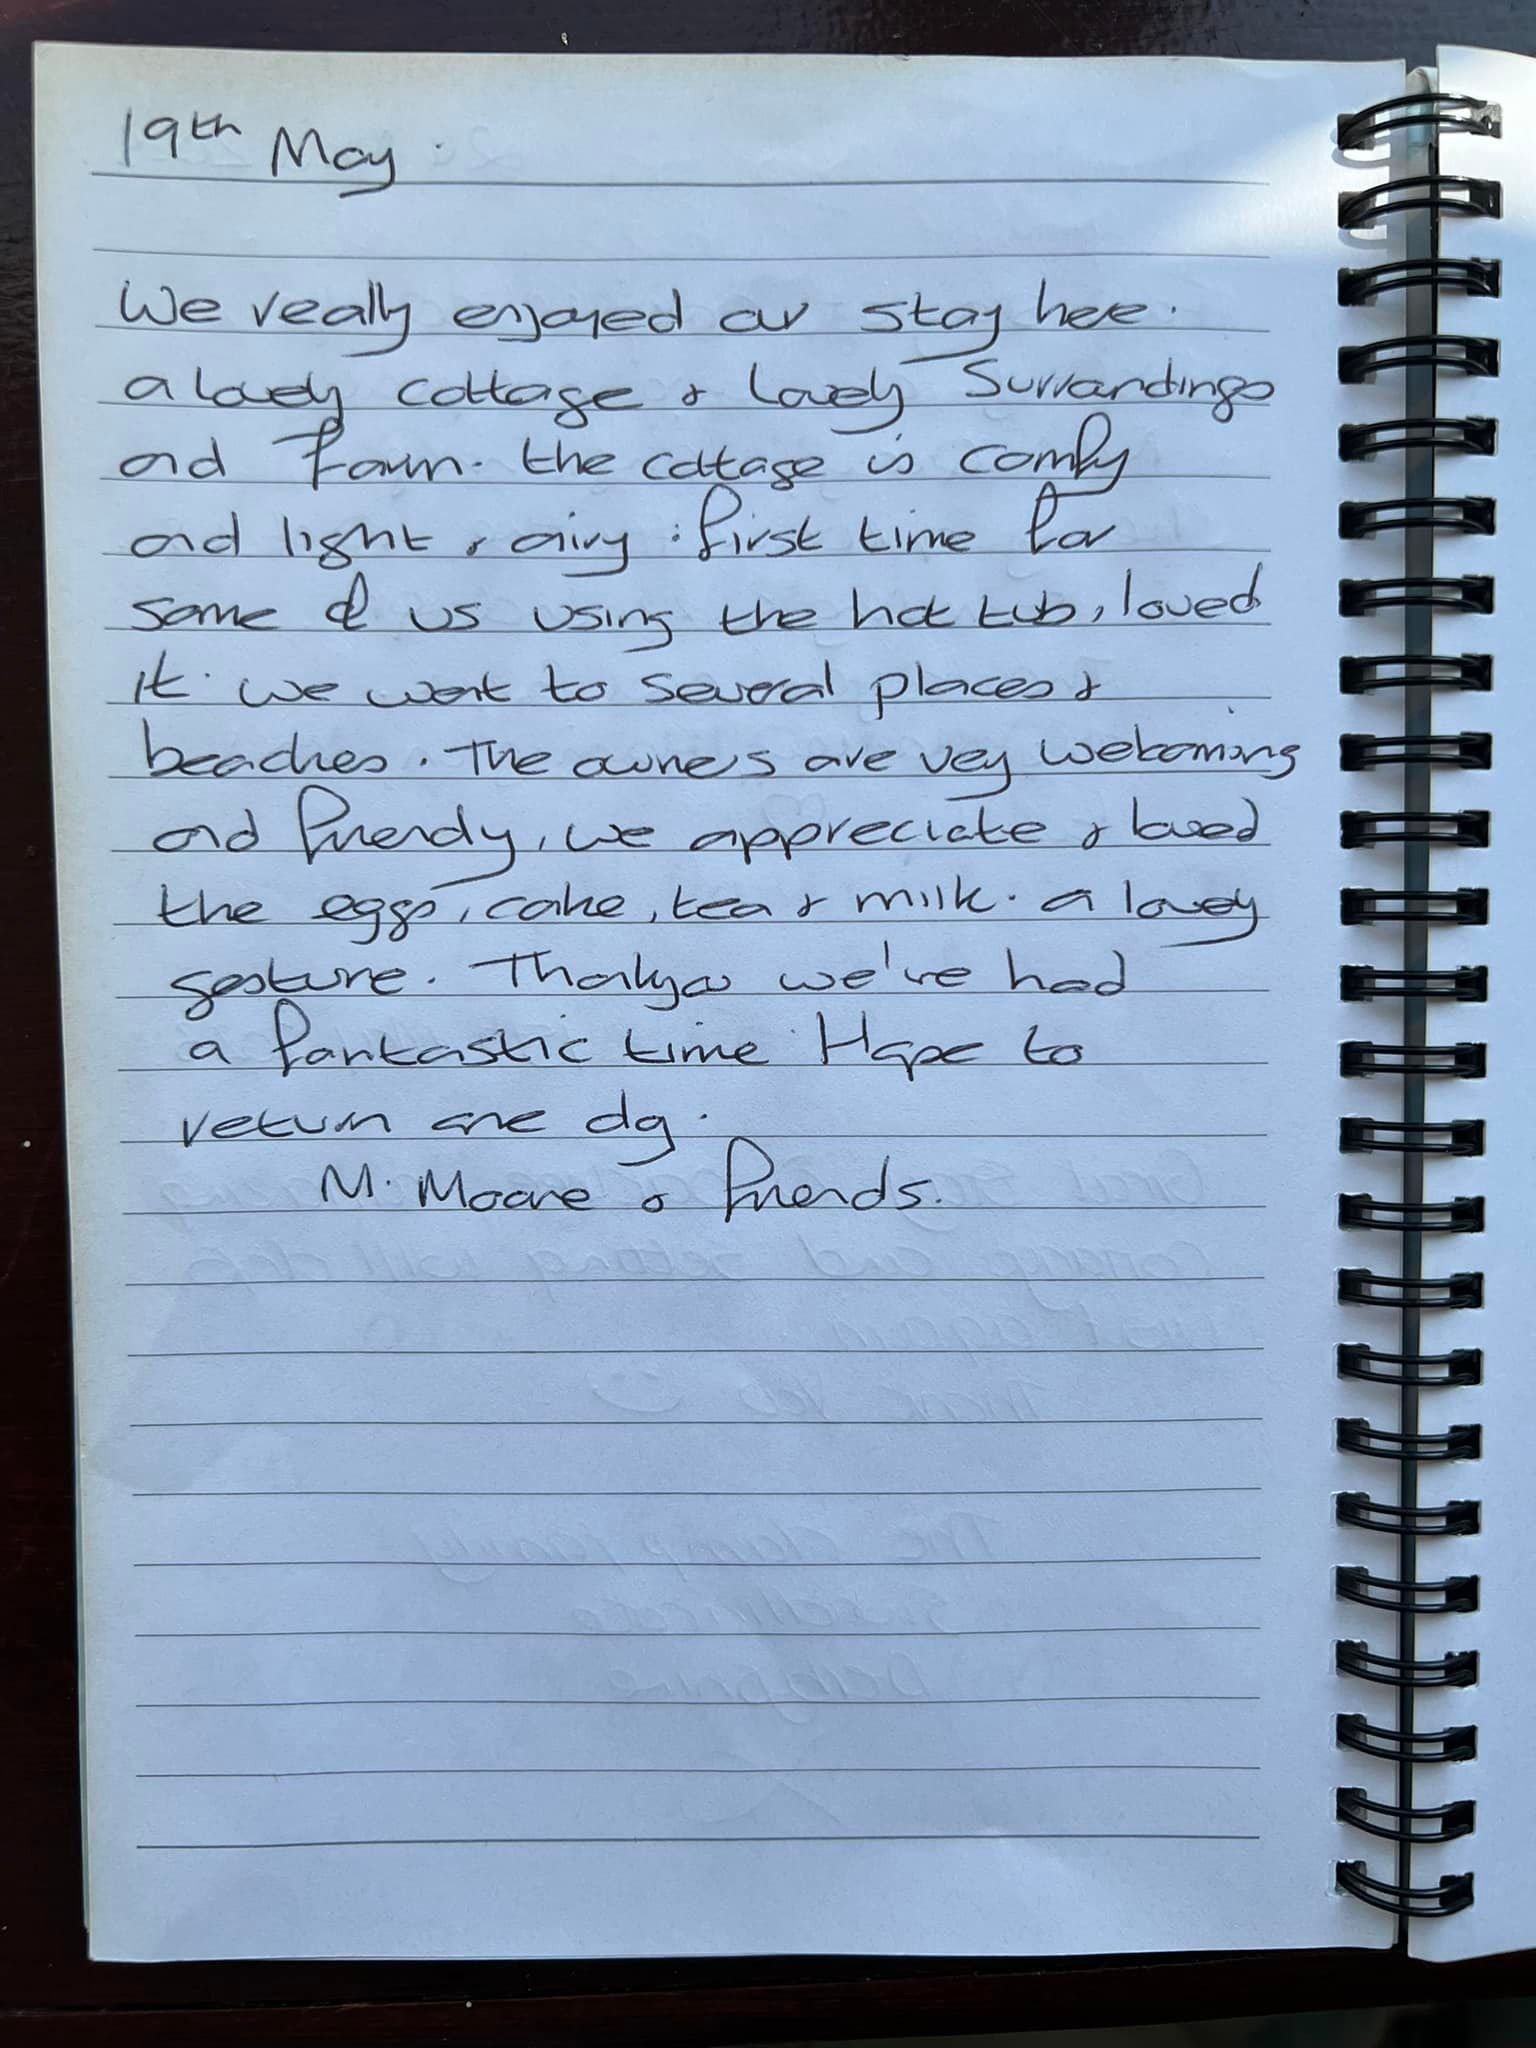 19th May.
We really enjoyed our stay here.
a lovely cottage & lovely Surroundings
and farm. the cottage is comfy
and light & airy. first time for
some of us using the hot tub, loved
it. we went to several places &
beaches. The owners are very welcoming
and friendly, we appreciate & loved
the eggs, cake, tea & milk. a lovely
gesture. Thankyou we've had
a fantastic time. Hope to
return one day.
M. Moore & friends.